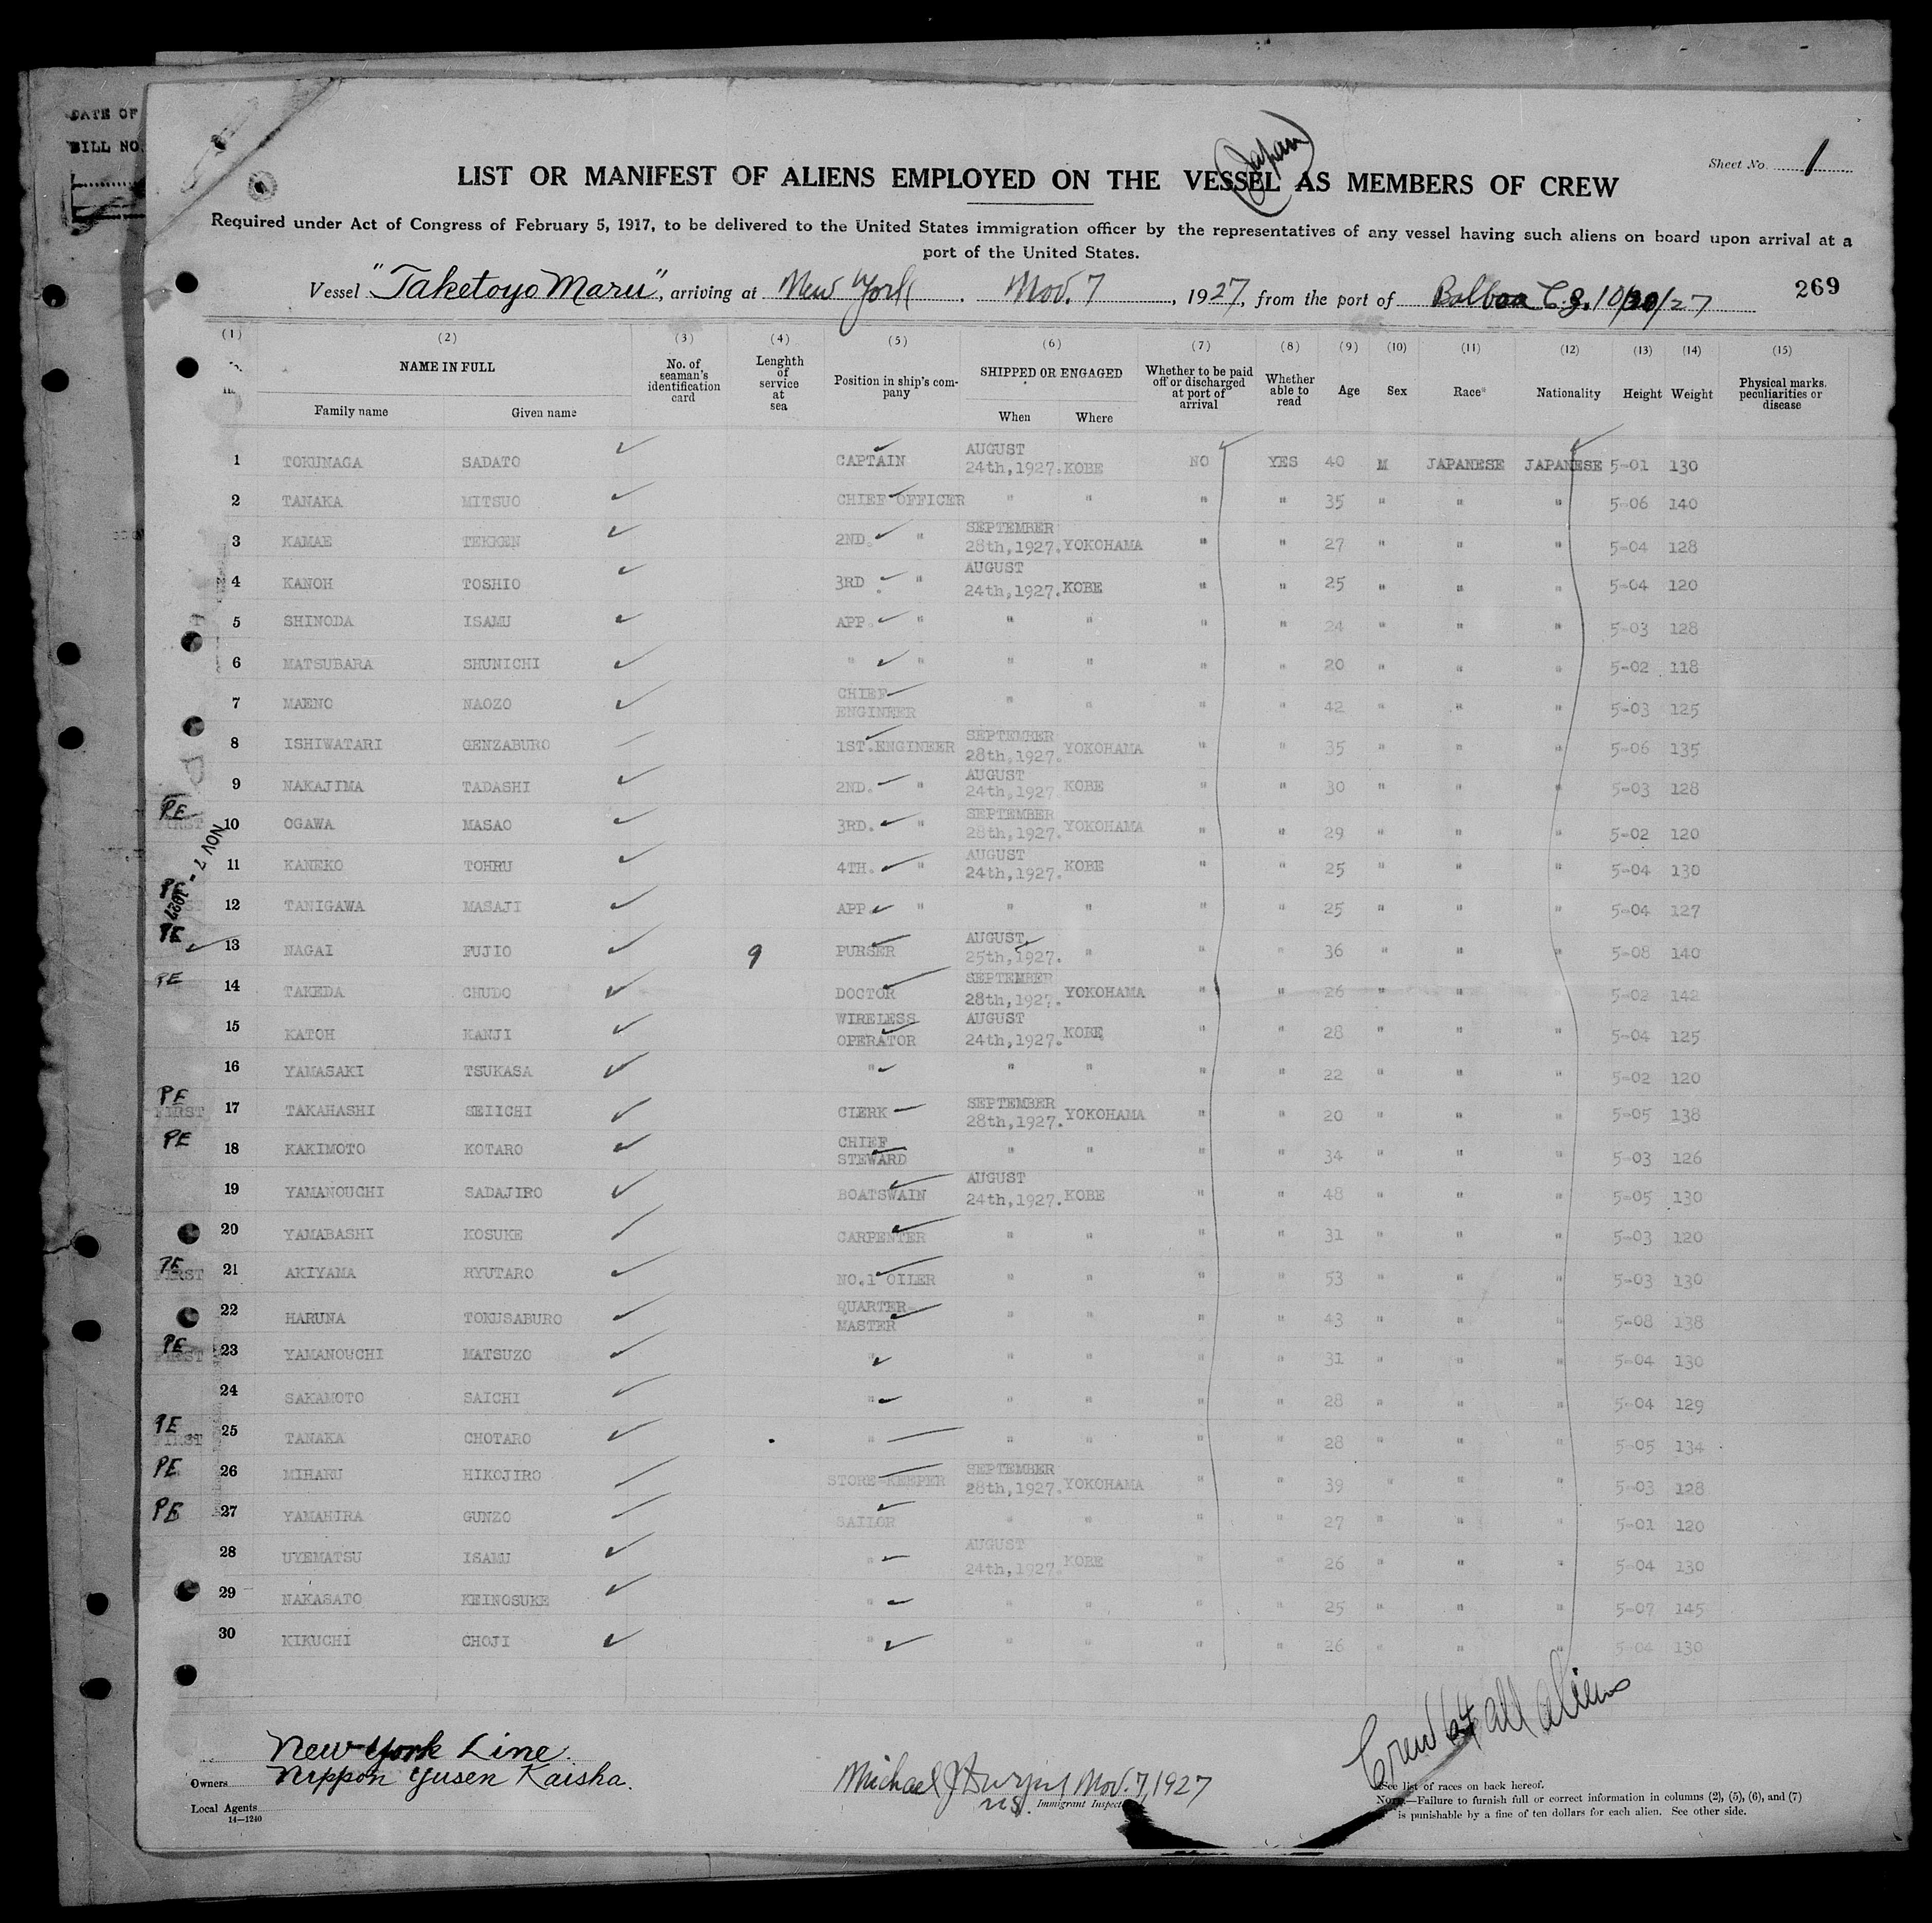 DATE OF
BILL NO.
(Japan)
Sheet No. 1
LIST OR MANIFEST OF ALIENS EMPLOYED ON THE VESSEL AS MEMBERS OF CREW
Required under Act of Congress of February 5, 1917, to be delivered to the United States immigration officer by the representatives of any vessel having such aliens on board upon arrival at a
port of the United States.
Vessel "Taketoyo Maru", arriving at New York. Nov. 7, 1927, from the port of Balboa C.Z. 10/30/27
269
(1) (2) (3) (4) (5) (6) (7) (8) (9) (10) (11) (12) (13) (14) (15)
NAME IN FULL
Family name Given name
No. of seaman's identification card
Lenghth of service at sea
Position in ship's company
SHIPPED OR ENGAGED
When Where
Whether to be paid off or discharged at port of arrival
Whether able to read
Age Sex Race* Nationality Height Weight
Physical marks, peculiarities or disease
1 TOKUNAGA SADATO CAPTAIN AUGUST 24th,1927. KOBE NO YES 40 M JAPANESE JAPANESE 5-01 130
2 TANAKA MITSUO CHIEF OFFICER " " " " 35 " " " 5-06 140
3 KAMAE TEKKEN 2ND. " SEPTEMBER 28th,1927. YOKOHAMA " " 27 " " " 5-04 128
4 KANOH TOSHIO 3RD. " AUGUST 24th,1927. KOBE " " 25 " " " 5-04 120
5 SHINODA ISAMU APP. " " " " " 24 " " " 5-03 128
6 MATSUBARA SHUNICHI " " " " " " 20 " " " 5-02 118
7 MAENO NAOZO CHIEF ENGINEER " " " " 42 " " " 5-03 125
8 ISHIWATARI GENZABURO 1ST.ENGINEER SEPTEMBER 28th,1927. YOKOHAMA " " 35 " " " 5-06 135
9 NAKAJIMA TADASHI 2ND. " AUGUST 24th,1927 KOBE " " 30 " " " 5-03 128
PE FIRST 10 OGAWA MASAO 3RD. " SEPTEMBER 28th,1927. YOKOHAMA " " 29 " " " 5-02 120
NOV 7 - 1927
11 KANEKO TOHRU 4TH. " AUGUST 24th,1927. KOBE " " 25 " " " 5-04 130
PE 12 TANIGAWA MASAJI APP. " " " " " 25 " " " 5-04 127
PE 13 NAGAI FUJIO 9 PURSER AUGUST 25th,1927. " " " 36 " " " 5-08 140
PE 14 TAKEDA CHUDO DOCTOR SEPTEMBER 28th,1927. YOKOHAMA " " 26 " " " 5-02 142
15 KATOH KANJI WIRELESS OPERATOR AUGUST 24th,1927. KOBE " " 28 " " " 5-04 125
16 YAMASAKI TSUKASA " " " " " 22 " " " 5-02 120
PE FIRST 17 TAKAHASHI SEIICHI CLERK SEPTEMBER 28th,1927. YOKOHAMA " " 20 " " " 5-05 138
PE 18 KAKIMOTO KOTARO CHIEF STEWARD " " " " 34 " " " 5-03 126
19 YAMANOUCHI SADAJIRO BOATSWAIN AUGUST 24th,1927. KOBE " " 48 " " " 5-05 130
20 YAMABASHI KOSUKE CARPENTER " " " " 31 " " " 5-03 120
PE FIRST 21 AKIYAMA RYUTARO NO.1 OILER " " " " 53 " " " 5-03 130
22 HARUNA TOKUSABURO QUARTER-MASTER " " " " 43 " " " 5-08 138
PE FIRST 23 YAMANOUCHI MATSUZO " " " " " 31 " " " 5-04 130
24 SAKAMOTO SAICHI " " " " " 28 " " " 5-04 129
PE FIRST 25 TANAKA CHOTARO " " " " " 28 " " " 5-05 134
PE 26 MIHARU HIKOJIRO STORE-KEEPER SEPTEMBER 28th,1927. YOKOHAMA " " 39 " " " 5-03 128
PE 27 YAMAHIRA GUNZO SAILOR " " " " 27 " " " 5-01 120
28 UYEMATSU ISAMU " AUGUST 24th,1927. KOBE " " 26 " " " 5-04 130
29 NAKASATO KEINOSUKE " " " " " 25 " " " 5-07 145
30 KIKUCHI CHOJI " " " " " 26 " " " 5-04 130
Crew 64 all aliens
New York Line.
Owners Nippon Yusen Kaisha.
Local Agents
14—1240
Michael J Dwyer Nov. 7, 1927
U.S. Immigrant Inspector
*See list of races on back hereof.
NOTE.—Failure to furnish full or correct information in columns (2), (5), (6), and (7)
is punishable by a fine of ten dollars for each alien. See other side.